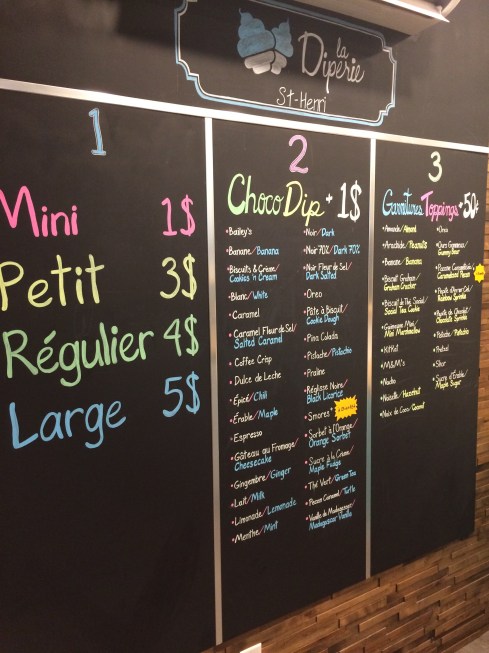 la
Diperie
St-Henri
1
Mini 1$
Petit 3$
Régulier 4$
Large 5$
2
Choco Dip + 1$
• Bailey's
• Banane/Banana
• Biscuits & Crème/
Cookies 'n Cream
• Blanc/White
• Caramel
• Caramel Fleur de Sel/
Salted Caramel
• Coffee Crisp
• Dulce de Leche
• Épicé/Chili
• Érable/Maple
• Espresso
• Gâteau au Fromage/
Cheesecake
• Gingembre/Ginger
• Lait/Milk
• Limonade/Lemonade
• Menthe/Mint
• Noir/Dark
• Noir 70%/Dark 70%
• Noir Fleur de Sel/
Dark Salted
• Oreo
• Pâte à Biscuit/
Cookie Dough
• Pina Colada
• Pistache/Pistachio
• Praline
• Réglisse Noire/
Black Licorice
• Smores
• Sorbet à l'Orange/
Orange Sorbet
• Sucre à la Crème/
Maple Fudge
• Thé Vert/Green Tea
• Pacane Caramel/Turtle
• Vanille de Madagascar/
Madagascar Vanilla
3
Garnitures Toppings + 50¢
• Amande/Almond
• Arachide/Peanuts
• Banane/Banana
• Biscuit Graham/
Graham Cracker
• Biscuit de Thé Social/
Social Tea Cookie
• Guimauve Mini/
Mini Marshmallow
• KitKat
• M&M's
• Nacho
• Noisette/Hazelnut
• Noix de Coco/Coconut
• Oreo
• Ours Gommeux/
Gummy Bear
• Pacane Caramélisée/
Caramelized Pecan
• Paillis d'Arc-en-Ciel/
Rainbow Sprinkles
• Paillis de Chocolat/
Chocolate Sprinkles
• Pistache/Pistachio
• Pretzel
• Skor
• Sucre d'Érable/
Maple Sugar